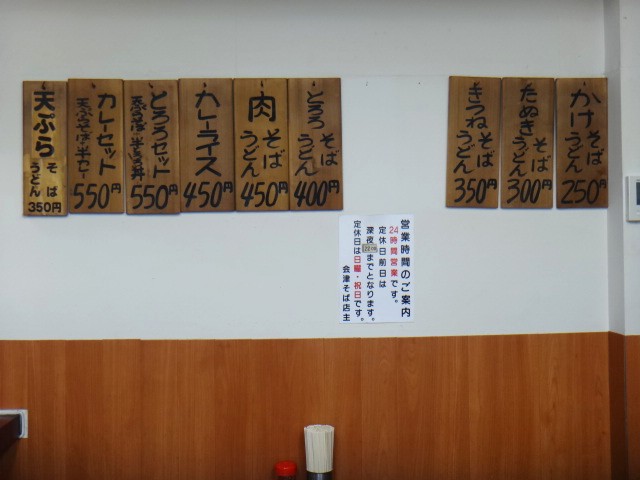 かけそばうどん
250円
たぬきそばうどん
300円
きつねそばうどん
350円
とろろそばうどん
400円
肉そばうどん
450円
カレーライス
450円
とろろセット
天ぷらそば・半とろろ丼
550円
カレーセット
天ぷらそば・半カレー
550円
天ぷらそばうどん
350円
営業時間のご案内
24時間営業です。
定休日前日は
深夜
までとなります。
定休日は日曜・祝日です。
会津そば店主